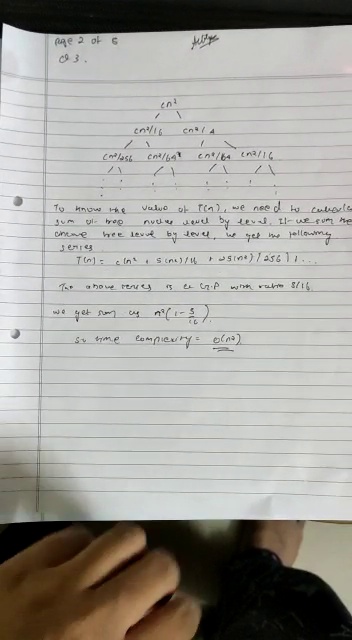 Page 2 of 6
Q 3.
cn²
cn²/16 cn²/4
cn²/256 cn²/64 cn²/64 cn²/16
To know the value of T(n), we need to calculate
sum of tree nodes level by level. If we sum the
above tree level by level, we get the following
series
T(n) = c(n² + 5(n²)/16 + 25(n²)/256) + ...
The above series is a G.P with ratio 5/16
we get sum as n²(1-5/16)
so time complexity = O(n²)